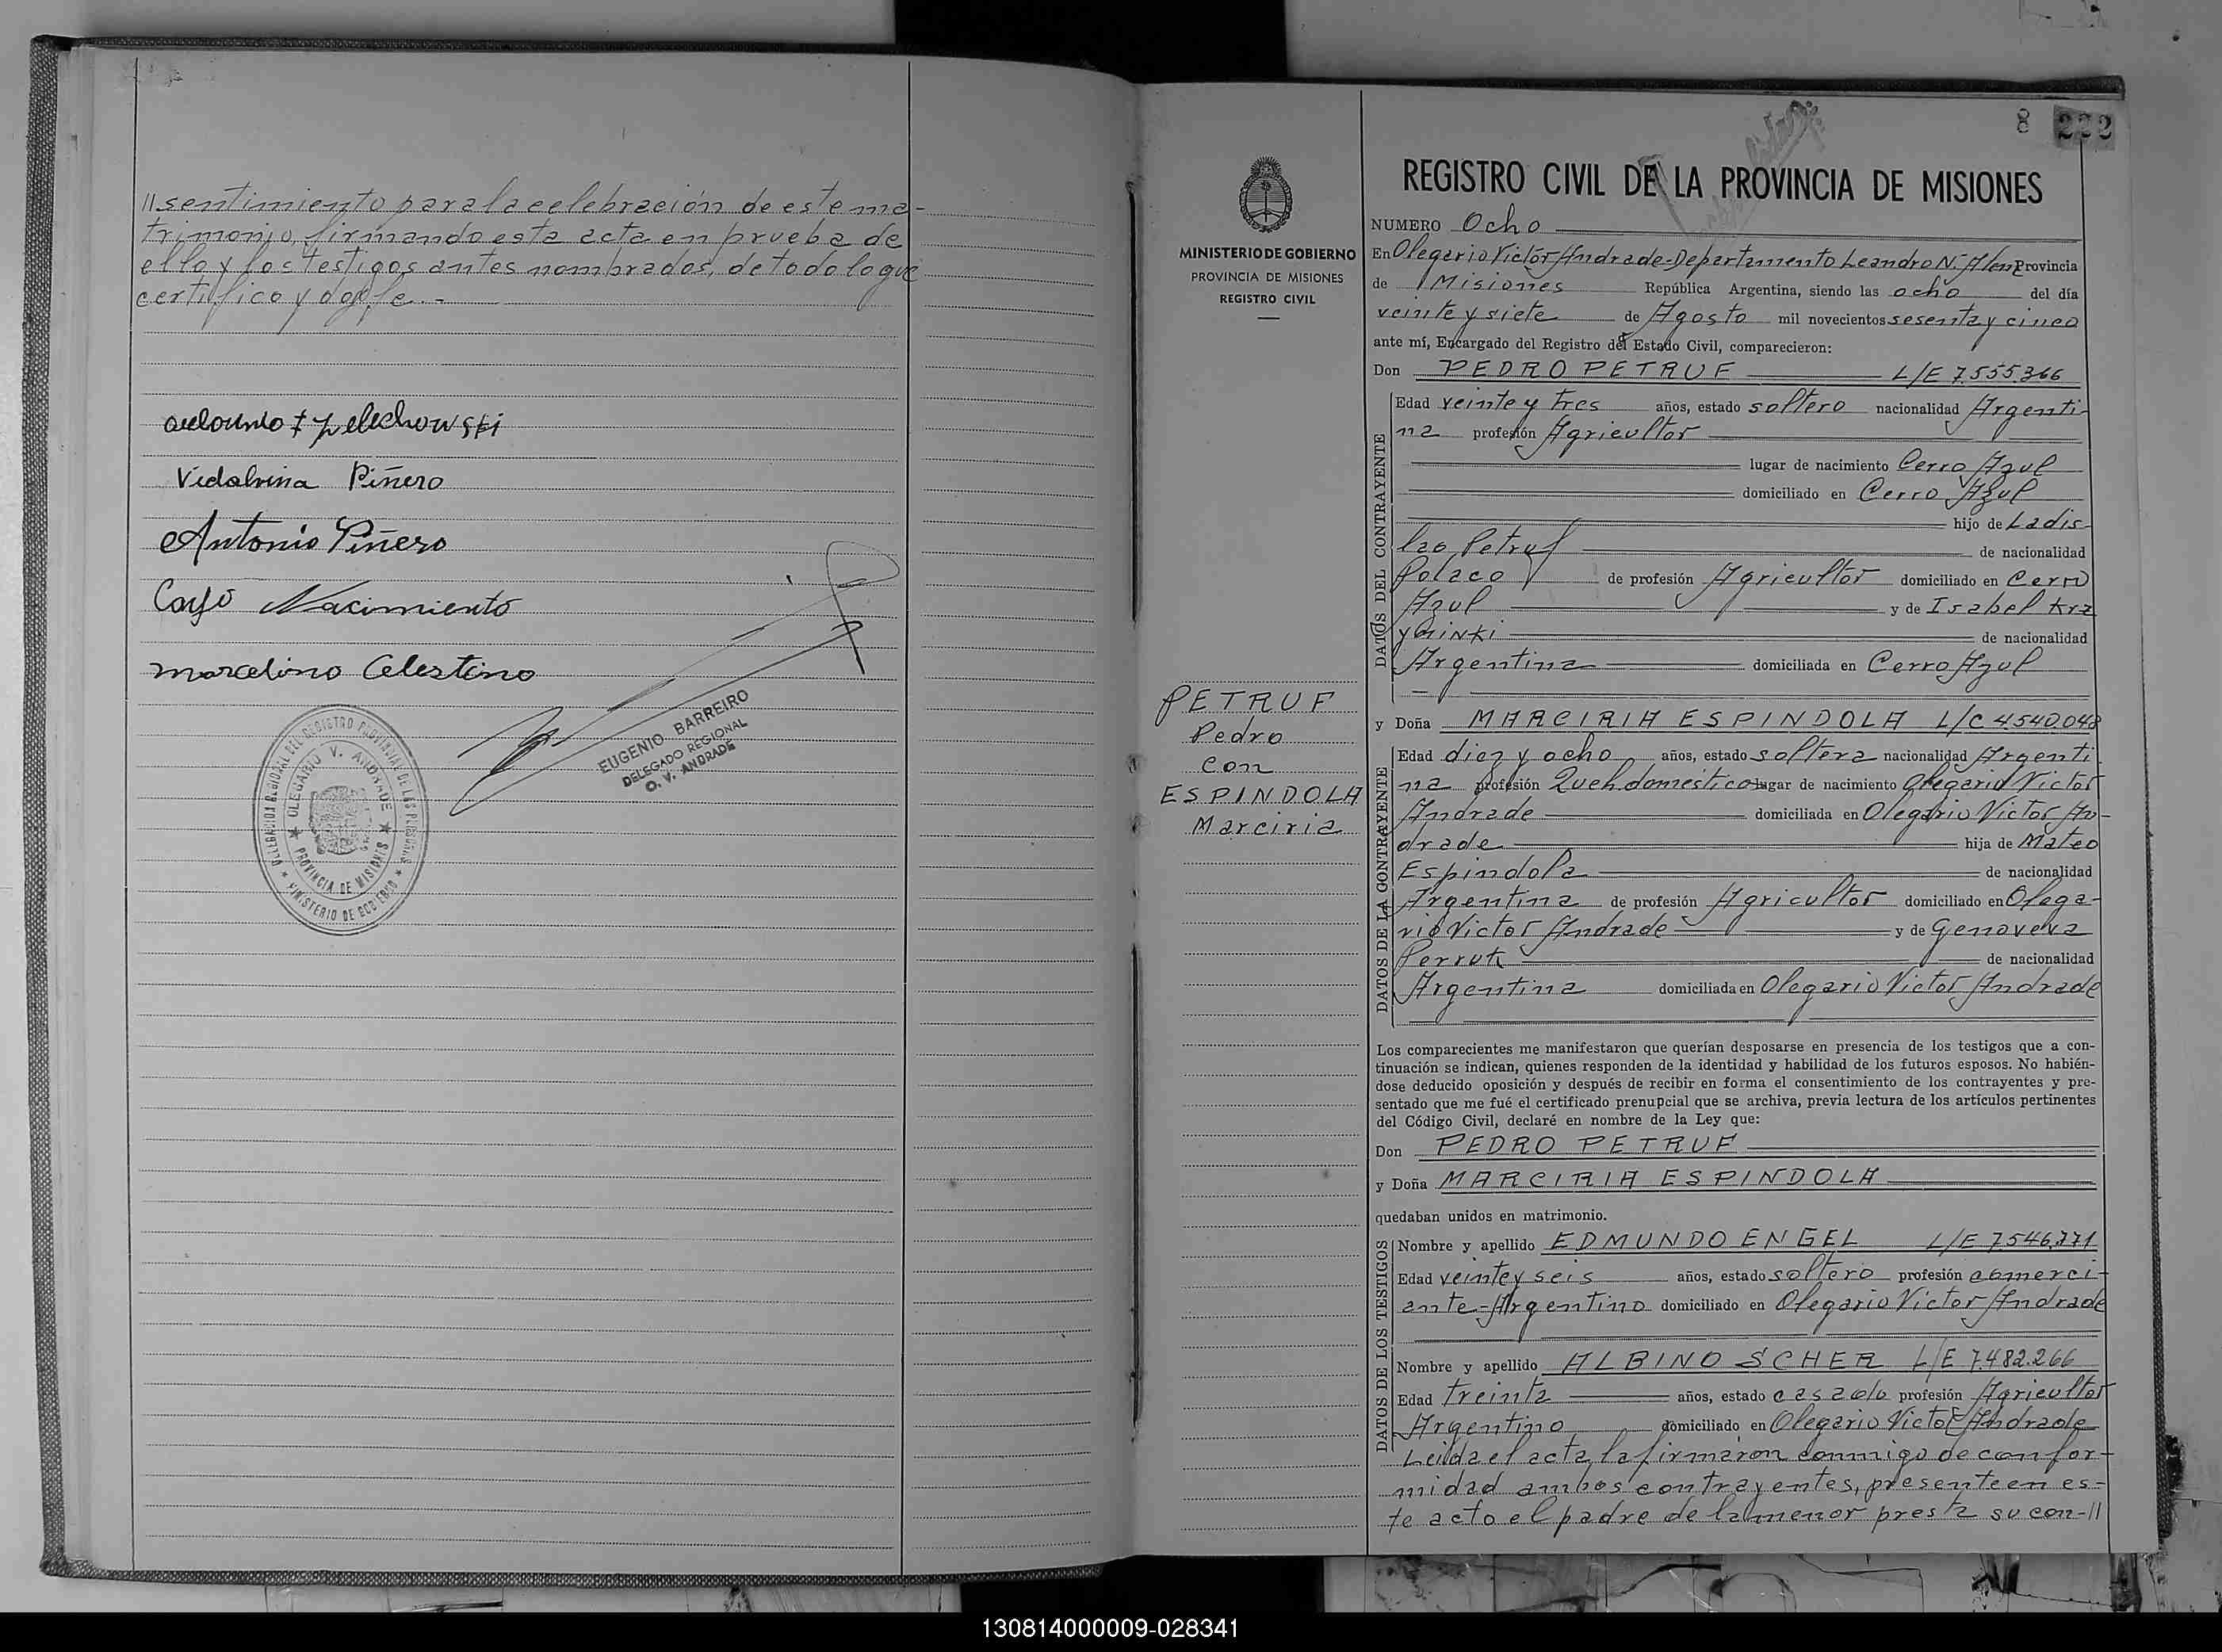 //sentimiento para la celebración de este ma-
trimonio, firmando esta acta en prueba de
ello y los testigos antes nombrados, de todo lo que
certifico y doy fe.-
Vidalvina Piñero
Antonio Piñero
Cayo Nacimiento
Marcelino Celestino
EUGENIO BARREIRO
DELEGADO REGIONAL
O. V. ANDRADE
DELEGACION REGIONAL DEL REGISTRO PROVINCIAL DE LAS PERSONAS
OLEGARIO V. ANDRADE
PROVINCIA DE MISIONES
MINISTERIO DE GOBIERNO
8 222
MINISTERIO DE GOBIERNO
PROVINCIA DE MISIONES
REGISTRO CIVIL
PETRUF
Pedro
con
ESPINDOLA
Marciria
REGISTRO CIVIL DE LA PROVINCIA DE MISIONES
NUMERO Ocho
En Olegario Victor Andrade-Departamento Leandro N. Alem Provincia
de Misiones República Argentina, siendo las ocho del día
veinte y siete de Agosto mil novecientos sesenta y cinco
ante mí, Encargado del Registro del Estado Civil, comparecieron:
Don PEDRO PETRUF L/E 7.555.366
DATOS DEL CONTRAYENTE
Edad veinte y tres años, estado soltero nacionalidad Argenti-
na profesión Agricultor
lugar de nacimiento Cerro Azul
domiciliado en Cerro Azul
hijo de Ladis-
lao Petruf de nacionalidad
Polaco de profesión Agricultor domiciliado en Cerro
Azul y de Isabel Kra
de nacionalidad
Argentina domiciliada en Cerro Azul
y Doña MARCIRIA ESPINDOLA L/C 4.540.048
DATOS DE LA CONTRAYENTE
Edad diez y ocho años, estado soltera nacionalidad Argenti
na profesión Queh.domestico lugar de nacimiento Olegario Victor
Andrade domiciliada en Olegario Victor An-
drade hija de Mateo
Espindola de nacionalidad
Argentina de profesión Agricultor domiciliado en Olega-
rio Victor Andrade y de Genoveva
de nacionalidad
Argentina domiciliada en Olegario Victor Andrade
Los comparecientes me manifestaron que querían desposarse en presencia de los testigos que a con-
tinuación se indican, quienes responden de la identidad y habilidad de los futuros esposos. No habién-
dose deducido oposición y después de recibir en forma el consentimiento de los contrayentes y pre-
sentado que me fué el certificado prenupcial que se archiva, previa lectura de los artículos pertinentes
del Código Civil, declaré en nombre de la Ley que:
Don PEDRO PETRUF
y Doña MARCIRIA ESPINDOLA
quedaban unidos en matrimonio.
DATOS DE LOS TESTIGOS
Nombre y apellido EDMUNDO ENGEL L/E 7.546.771
Edad veinte y seis años, estado soltero profesión comerci-
ante-Argentino domiciliado en Olegario Victor Andrade
Nombre y apellido ALBINO SCHER L/E 7.482.266
Edad treinta años, estado casado profesión Agricultor
Argentino domiciliado en Olegario Victor Andrade
Leida el acta, la firmaron conmigo de confor-
midad ambos contrayentes, presente en es-
te acto el padre de la menor presta su con-//
130814000009-028341